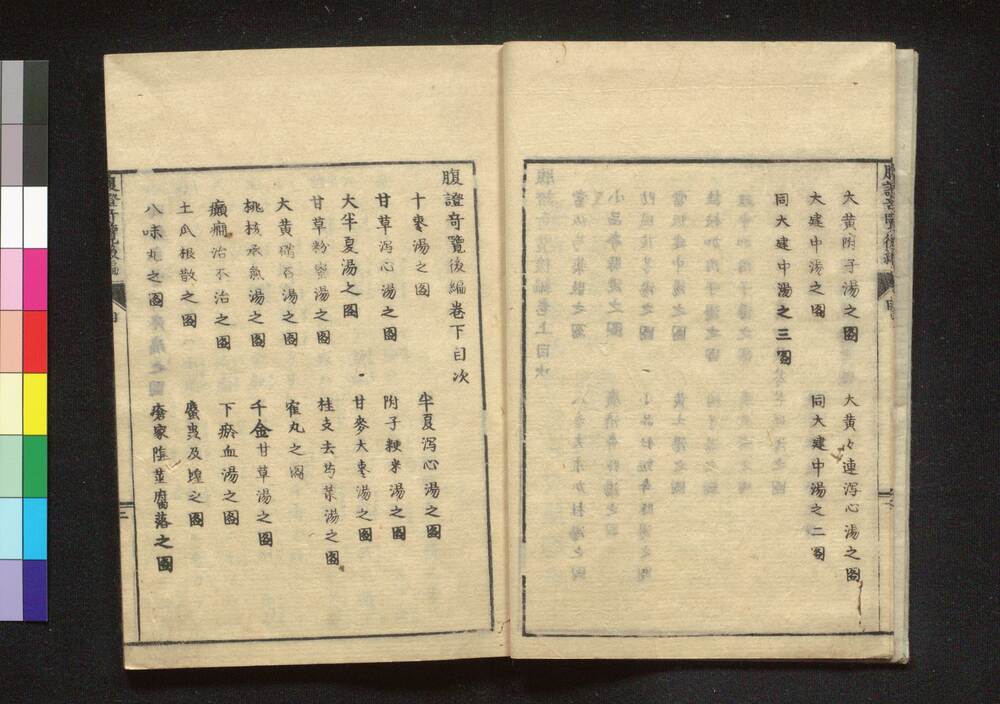 大黄附子湯之圖
大黄々連瀉心湯之圖
大建中湯之圖
同大建中湯之二圖
同大建中湯之三圖
腹證奇覽後編卷下目次
十棗湯之圖
半夏瀉心湯之圖
甘草瀉心湯之圖
附子粳米湯之圖
大半夏湯之圖
甘麥大棗湯之圖
甘草粉蜜湯之圖
桂支去芍藥湯之圖
大黄硝石湯之圖
寉丸之圖
桃核承氣湯之圖
千金甘草湯之圖
癲癇治不治之圖
下瘀血湯之圖
土瓜根散之圖
蜚䖟及蝗之圖
八味丸之圖
瘡家陰莖腐落之圖